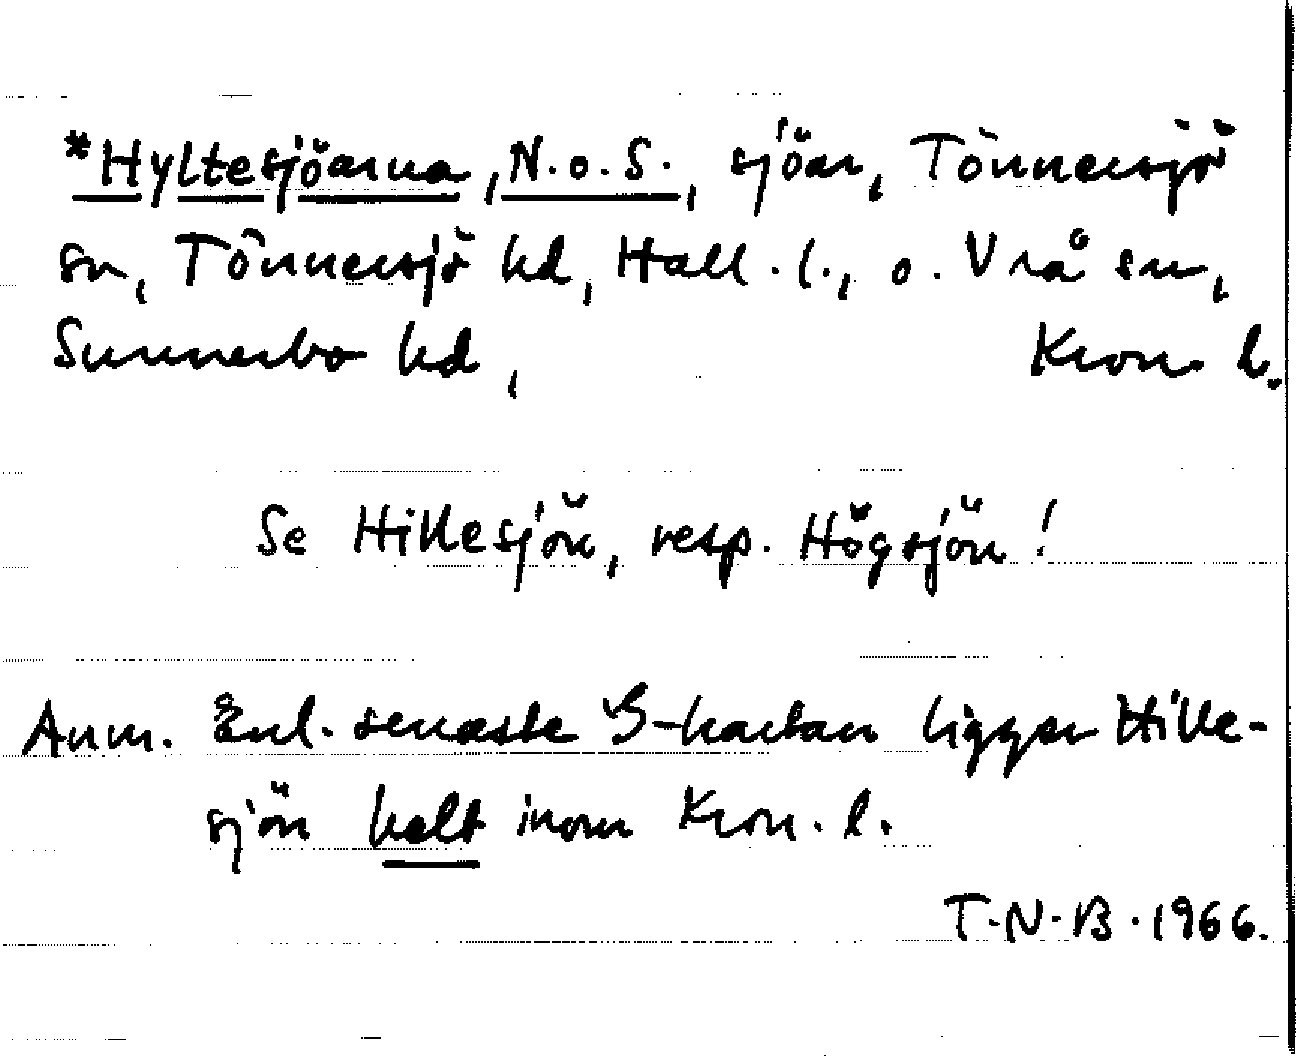 *Hyltesjöarna, N. o. S., sjöar, Tönnersjö
sn, Tönnersjö hd, Hall. l., o. Vrå sn,
Sunnerbo hd, Kron. l.
Se Hillesjön, resp. Högsjön!
Anm. Enl. senaste G-kartan ligger Hille-
sjön helt inom Kron. l.
T.N.B. 1966.